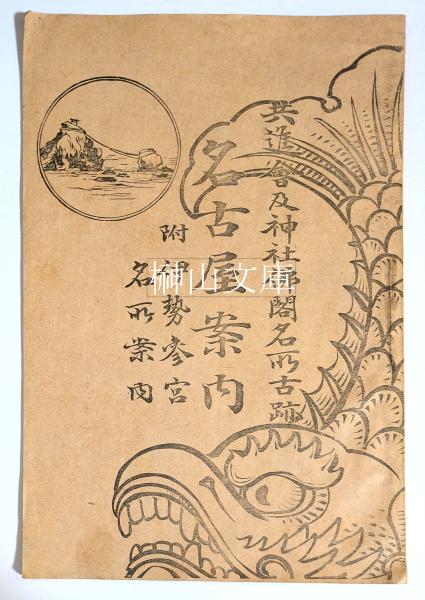 共進會及神社佛閣名所古跡
名古屋案内
附伊勢參宮
名所案内
榊山文庫